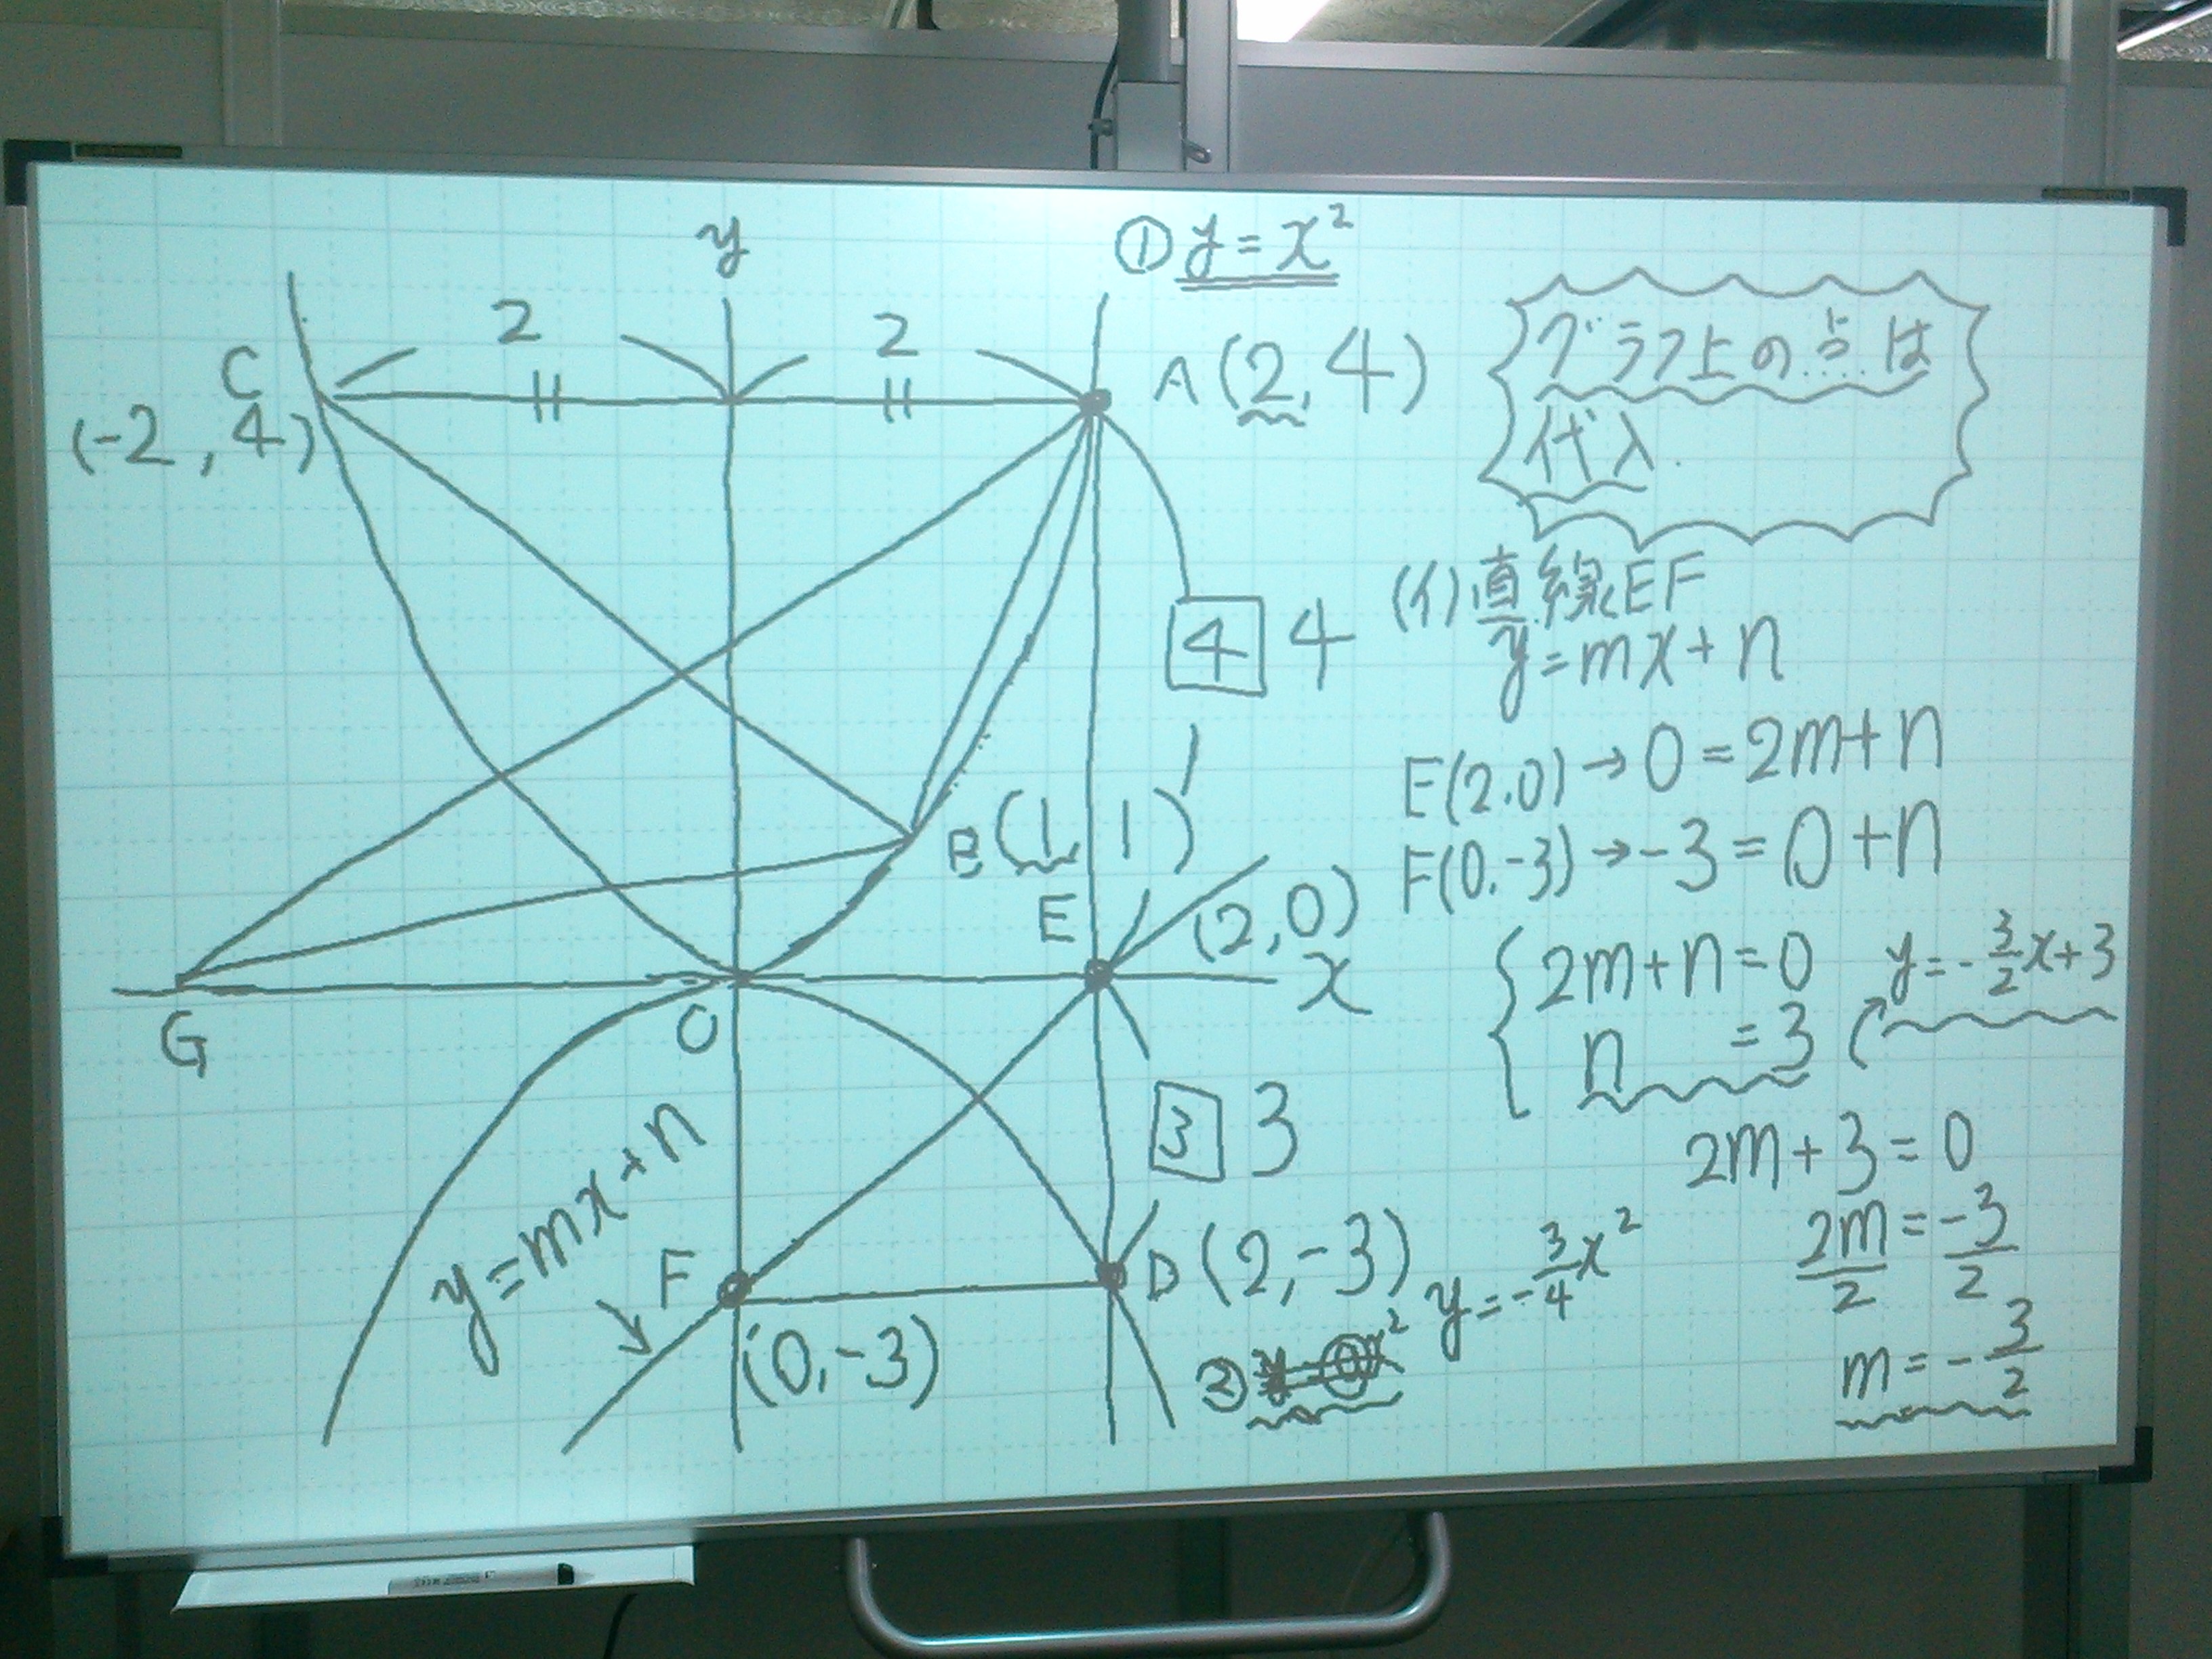 y
① y=x²
2
2
C
(-2, 4)
A(2, 4)
グラフ上の点は
代入.
4 4
(イ)直線EF
y=mx+n
E(2.0)→0=2m+n
F(0.-3)→-3=0+n
B(1, 1)
E
(2,0)
x
G
O
2m+n=0
n =3
y=-3/2x+3
3 3
2m+3=0
2m/2=-3/2
m=-3/2
y=mx+n
F
(0,-3)
D(2,-3)
②
y=-3/4x²